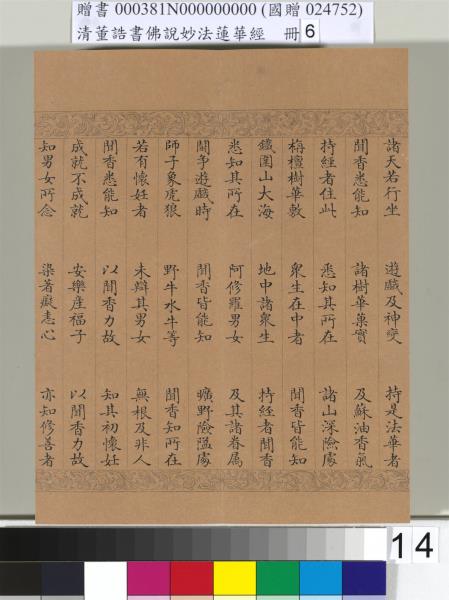 贈書 000381N000000000 (國贈 024752)
清董誥書佛說妙法蓮華經 冊 6
諸天若行坐 遊戲及神變 持是法華者
聞香悉能知 諸樹華菓實 及蘇油香氣
持經者住此 悉知其所在 諸山深險處
栴檀樹華敷 眾生在中者 聞香皆能知
鐵圍山大海 地中諸眾生 持經者聞香
悉知其所在 阿修羅男女 及其諸眷属
鬪爭遊戲時 聞香皆能知 曠野險隘處
師子象虎狼 野牛水牛等 聞香知所在
若有懷妊者 未辯其男女 無根及非人
聞香悉能知 以聞香力故 知其初懷妊
成就不成就 安樂産福子 以聞香力故
知男女所念 染著癡恚心 亦知修善者
14